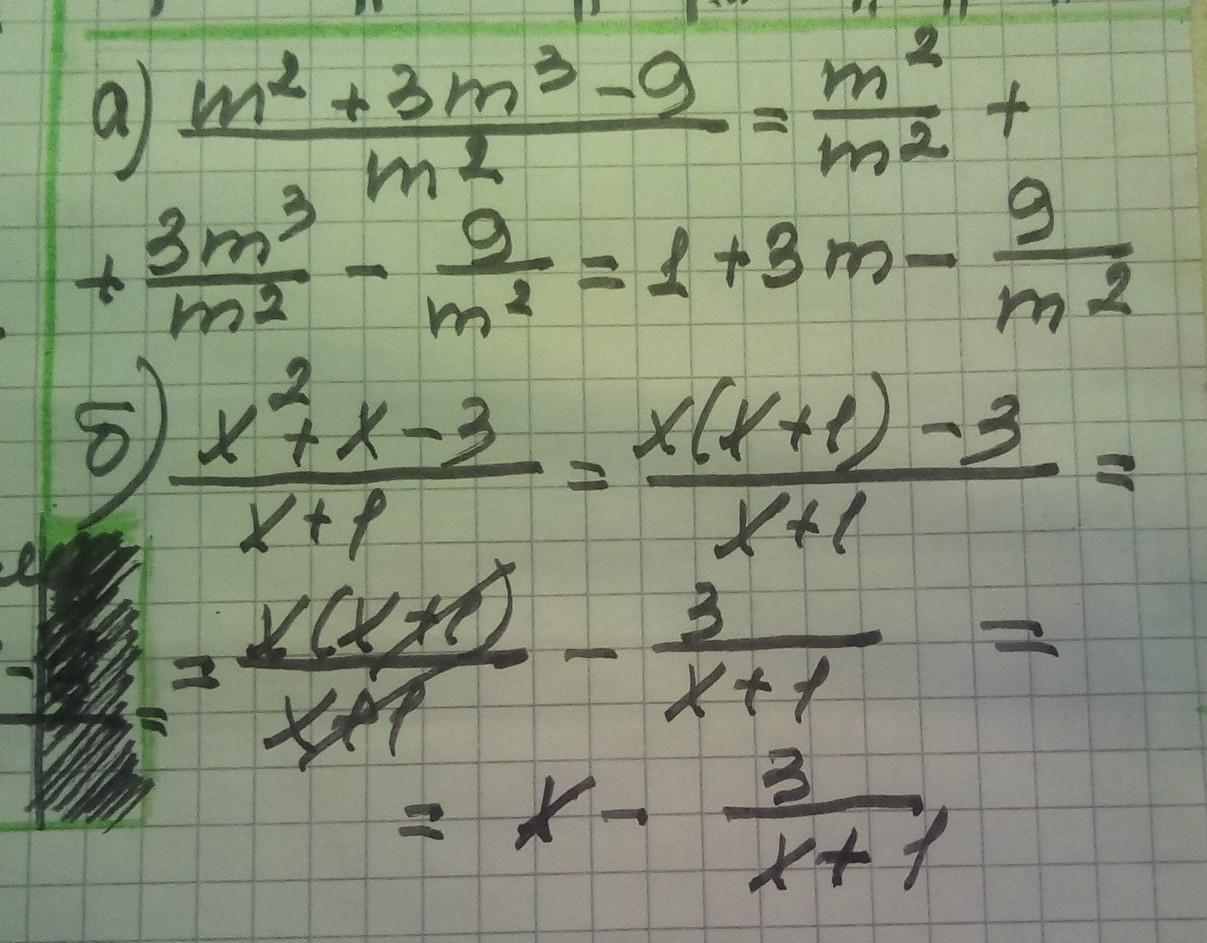 а) (m² + 3m³ - 9)/m² = m²/m² +
+ 3m³/m² - 9/m² = 1 + 3m - 9/m²
б) (x² + x - 3)/(x+1) = (x(x+1) - 3)/(x+1) =
= x(x+1)/(x+1) - 3/(x+1) =
= x - 3/(x+1)